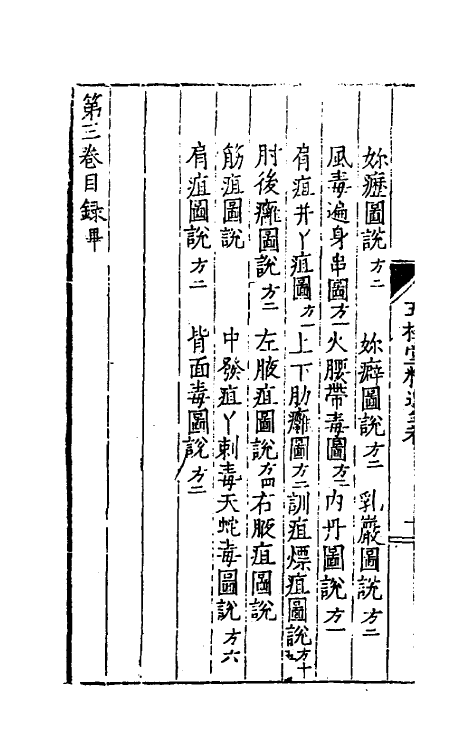 妳癧圖說方二　妳癖圖說方二　乳巖圖說方二
風毒遍身串圖方一火腰帶毒圖方二內丹圖說方一
肩疽井丫疽圖方一上下肋癰圖方二訓疽熛疽圖說方十五
肘後癰圖說方二左腋疽圖說方四右腋疽圖說
筋疽圖說　中發疽丫刺毒天蛇毒圖說方六
肩疽圖說方二　背面毒圖說方二
第三卷目録畢